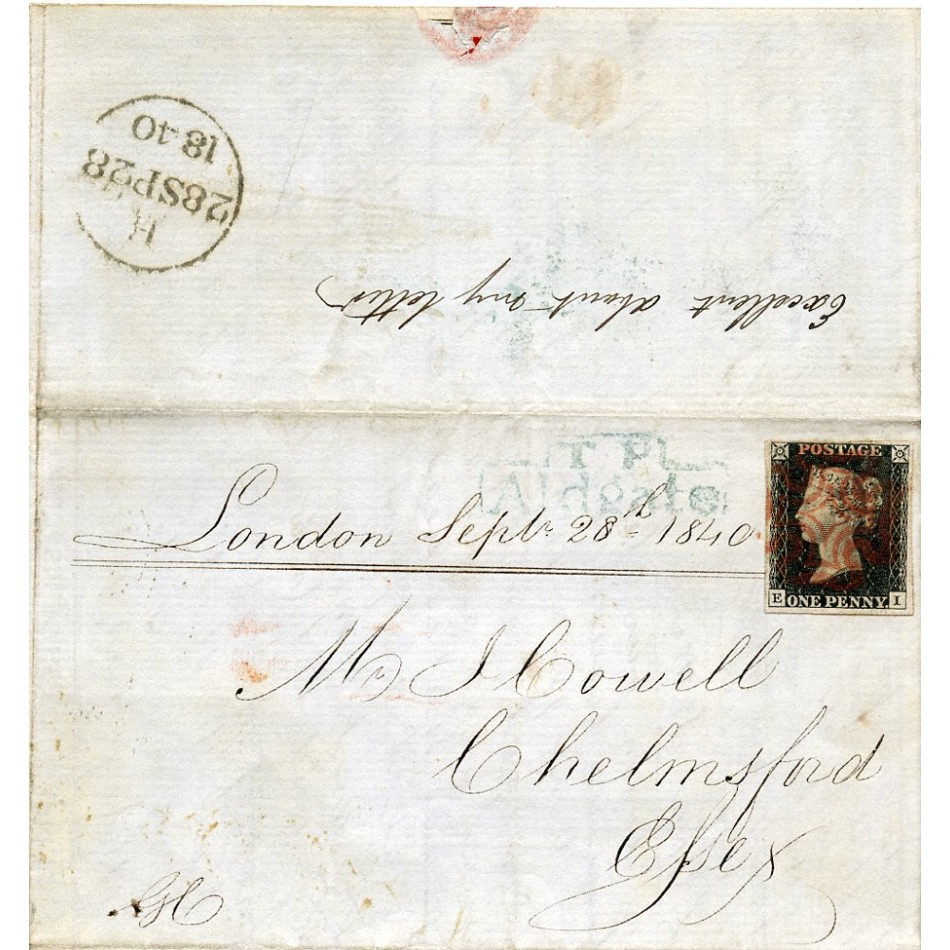 H
28SP28
1840
Excellent about my letter
T P
Aldgate
London Septr 28th 1840
POSTAGE
E ONE PENNY. I
Mr J Cowell
Chelmsford
Essex